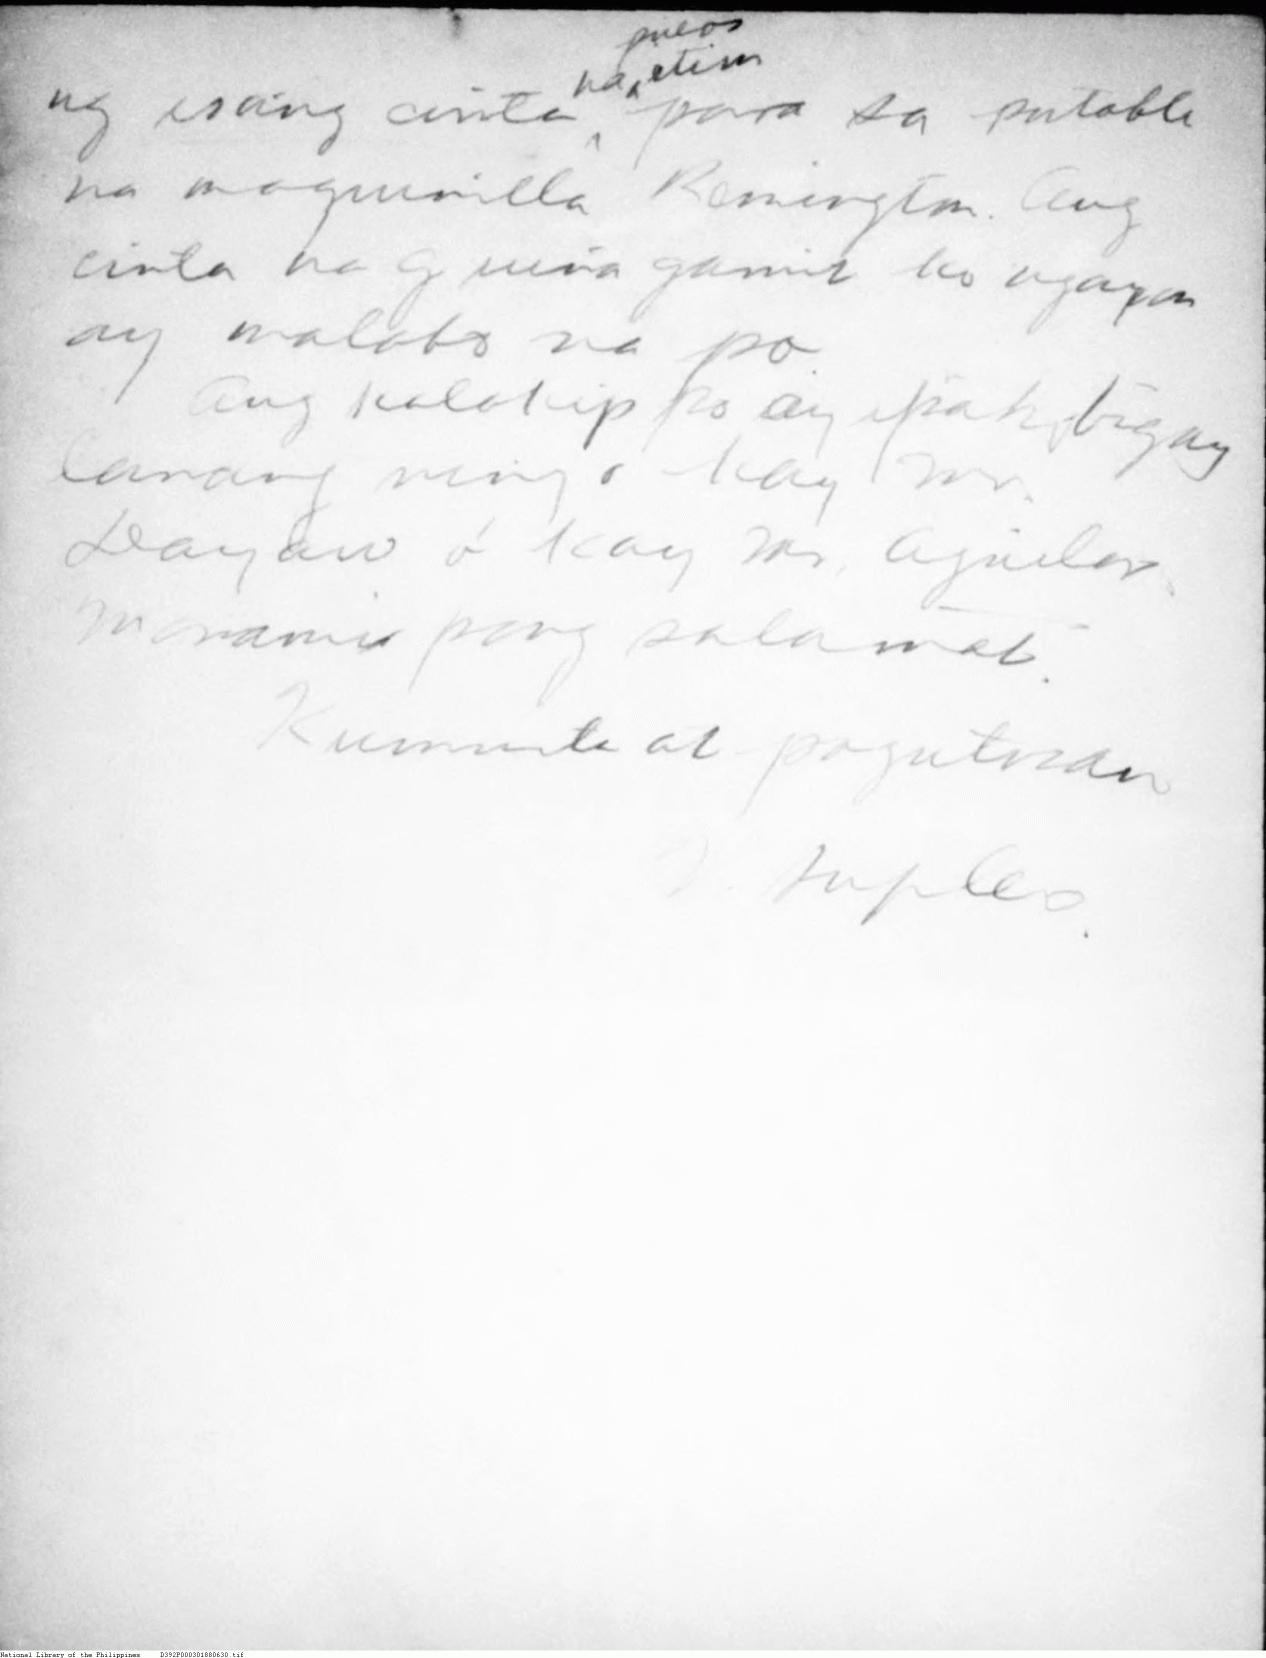 puros
na itim
ng isang cinta para sa portable
na maquinilla Remington. Ang
cinta na guinagamit ko ngayon
ay malabo na po
Ang kalakip po ay ipakibigay
lamang ninyo kay Mr.
Dayaw ó kay Mr. Aguilar.
Maraming pong salamat.
Gumagalang at
National Library of the Philippines D392P000301880630.tif